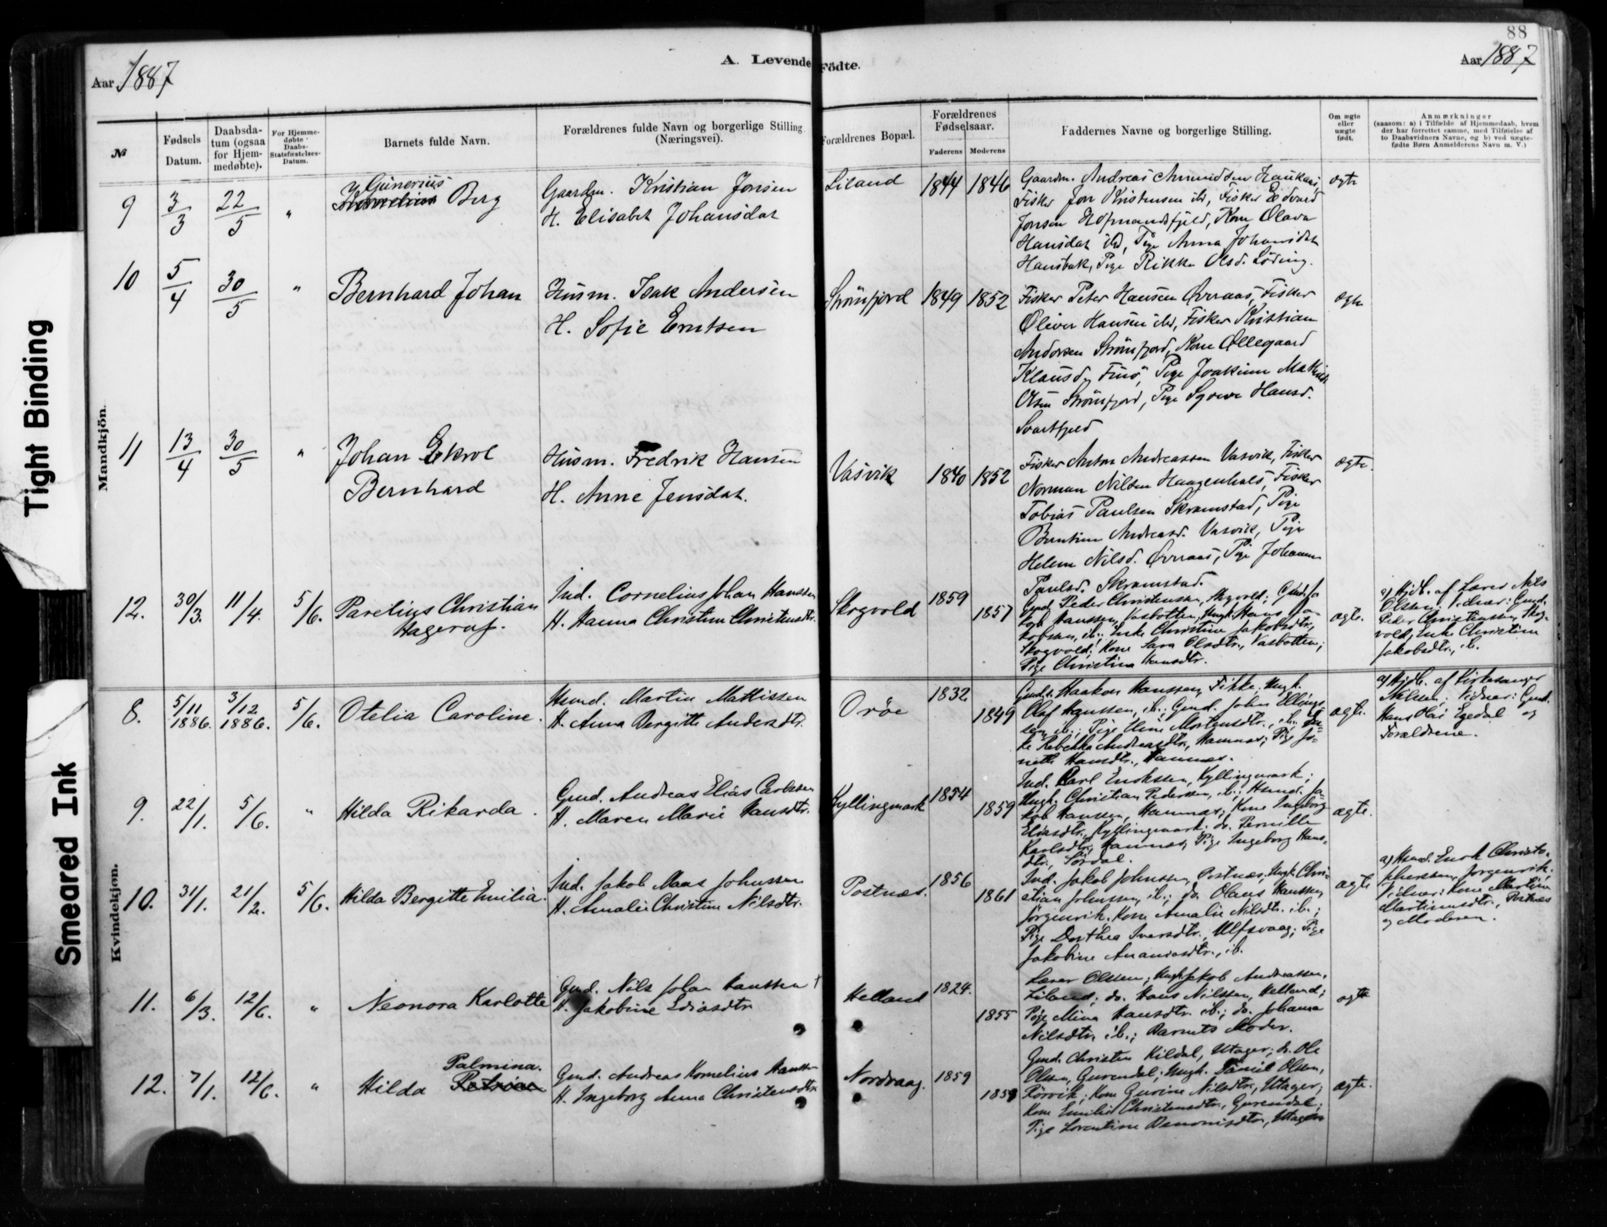 88
Aar 1887
A. Levende Födte.
Aar 1887
Tight Binding
Smeared Ink
Mandkjön.
Kvindekjøn.
№
Fødsels Datum.
Daabsdatum (ogsaa for Hjemmedøbte).
For Hjemmedøbte Daabs-Stadfæstelses-Datum.
Barnets fulde Navn.
Forældrenes fulde Navn og borgerlige Stilling (Næringsvei).
Forældrenes Bopæl.
Forældrenes Fødselsaar.
Faderens
Moderens
Faddernes Navne og borgerlige Stilling.
Om ægte eller uægte født.
Anmærkninger
(saasom: a) i Tilfælde af Hjemmedaab, hvem der har forrettet samme, med Tilføielse af to Daabsvidners Navne, og b) ved uægtefødte Børn Anmelderens Navn m. V.)
Gunerius
9 3/3 22/5 " Berg
Gaardm. Kristian Jonsen
H. Elisabet Johansdat
Liland 1844 1846
Gaardm. Andreas Amundsen
Fisker Jon Kristensen ibd, Fisker Edvard
Jonsen Hofmandsfjeld, Kone Olava
Hansdat ibd, Pige Anna Johansdat
Hansbak, Pige Rikka Olsd. Løding.
ægte
10 5/4 30/5 " Bernhard Johan
Husm. Isak Andersen
H. Sofie Erntsen
Strømfjord 1849 1852
Fisker Peter Hansen Øvraas, Fisker
Oliver Hansen ibd, Fisker Kristian
Andersen Strømfjord, Kone Ollegaard
Klausd. Finø, Pige Joakime
Olsen Strømfjord, Pige Hansd.
Svartfjeld
ægte
11 13/4 30/5 " Johan Ekrol
Bernhard
Husm. Fredrik Hansen
H. Anne Jensdat.
Vasvik 1840 1852
Fisker Anton Andreassen Vasvik, Fisker
Norman Nilsen Haagenhals, Fisker
Tobias Paulsen Skramstad, Pige
Berntine Andreasd. Vasvik, Pige
Helene Nilsd. Øvraas, Pige Johanna
Paulsd. Skramstad.
ægte.
12. 30/3. 11/4. 5/6. Parelius Christian
Hagerup.
Ind. Cornelius Johan Hanssen
H. Hanna Christine Christensdtr.
Skogvold 1859 1857
Gmd. Peder Christensen, Skogvold;
Hanssen, Vasbotten, Ungk. Hans
ib.; Enke Christine Jakobsdtr,
Skogvold; Kone Sara Olsdtr, Vasbotten;
Pige Christina Hansdtr.
ægte.
a) Hjdb. af Lærer Nils
Olssen. Vidner: Gmd.
Peder Christensen, Skogvold, Enke Christine
Jakobsdtr, ib.
8. 5/11 1886. 3/12 1886. 5/6. Otelia Caroline.
Husmd. Martin Mathissen
H. Anna Bergitte Andersdtr.
Orøe 1832 1849
Gmd. Haakon Hanssen, Fikke; Ungk.
Olaf Hanssen, ib.; Gmd. Johan Ellingsen ib.; Pige Eline Mortensdtr, ib.;
Rebekka Andreasdtr, Hamnas; Pige
Hansdtr, Hamnas.
ægte.
a) Hjdb. af Kirkesanger
Nielsen. Vidner: Gmd.
Hans Olai Egedal og
Forældrene.
9. 22/1. 5/6. " Hilda Rikarda.
Gmd. Andreas Elias Carlssen
H. Maren Marie Hansdtr.
Kyllingmark 1854 1859
Ind. Carl Enokssen, Kyllingmark;
Ungk. Christian Pedersen, ib.; Husmd. Jakob Hanssen, Hamnas; Kone Ingeborg
Eliasdtr, Kyllingmark; do. Pernille
Karlsdtr, Hamnas; Pige Ingeborg Hansdtr, Sørdal.
ægte.
10. 31/1. 21/2. 5/6. Hilda Bergitte Emilia.
Ind. Jakob Maas Johnssen
H. Amalie Christine Nilsdtr.
Postnæs. 1856 1861
Ind. Jakob Johnssen, Postnæs; Ungk. Christian Johnssen, ib.; do. Olaus Hanssen,
Jørgenvik; Kone Amalie Nilsdtr, ib.;
Pige Dorthea Iversdtr, Ulfsvaag; Pige
Jakobine Ananiasdtr, ib.
ægte
a) Husmd. Enok Christophersen, Jørgenvik.
Vidner: Kone Martine
Martinusdtr, Postnæs
og Moderen.
11. 6/3. 12/6. " Neonora Karlotte
Gmd. Nils Johan Hanssen †
H. Jakobine Eliasdtr
Helland 1824. 1855
Lærer Olssen; Ungk. Jakob Andreassen,
Liland; do. Hans Nilssen, Helland;
Pige Mina Hansdtr ib.; do. Johanna
Nilsdtr, ib.; Barnets Moder.
ægte
Palmina.
12. 7/1. 12/6. " Hilda Petrine
Gmd. Andreas Kornelius Hanssen
H. Ingeborg Anna Christensdtr
Nordvaag. 1859 1859
Gmd. Christen Kildal, Utager; do. Ole
Olsen, Gurendal; Ungk. Daniel Olsen,
Rørvik; Kone Gurine Nilsdtr, Utager;
Kone Emilie Christensdtr, Gurendal;
Pige Lorentine Benonisdtr, Utager
ægte.